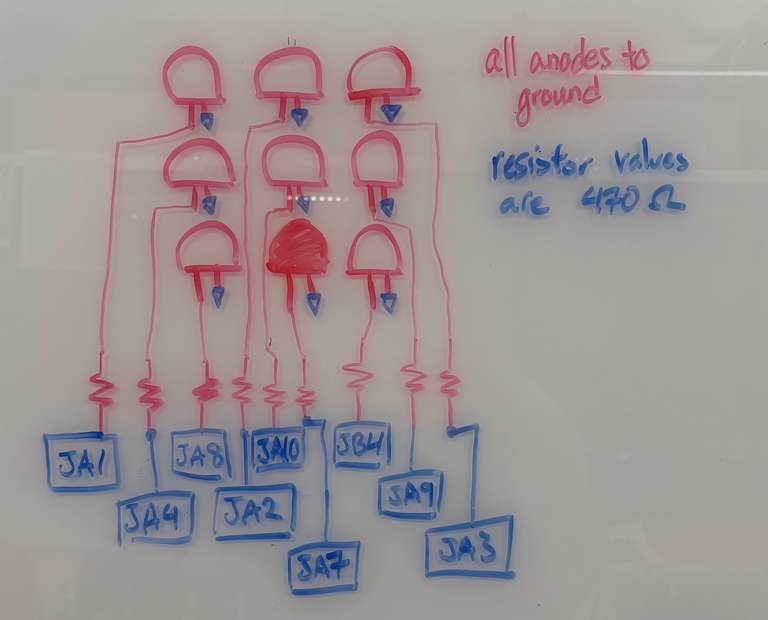 all anodes to
ground
resistor values
are 470 Ω
JA1
JA8
JA10
JB4
JA4
JA2
JA9
JA7
JA3